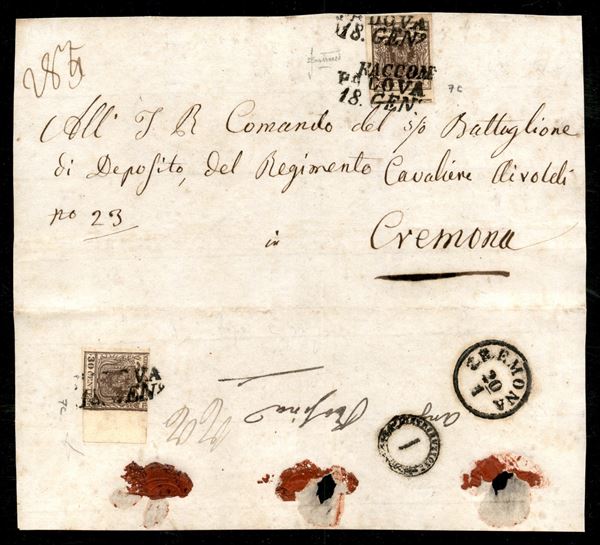 PADOVA
18. GEN.º
RACCOM.
PADOVA
18. GEN.º
7c
All' I R Comando del i/o Battaglione
di Deposito, del Regimento Cavaliere Airoldi
no 23
in Cremona
30 CENT
7c
CREMONA
20
1
1